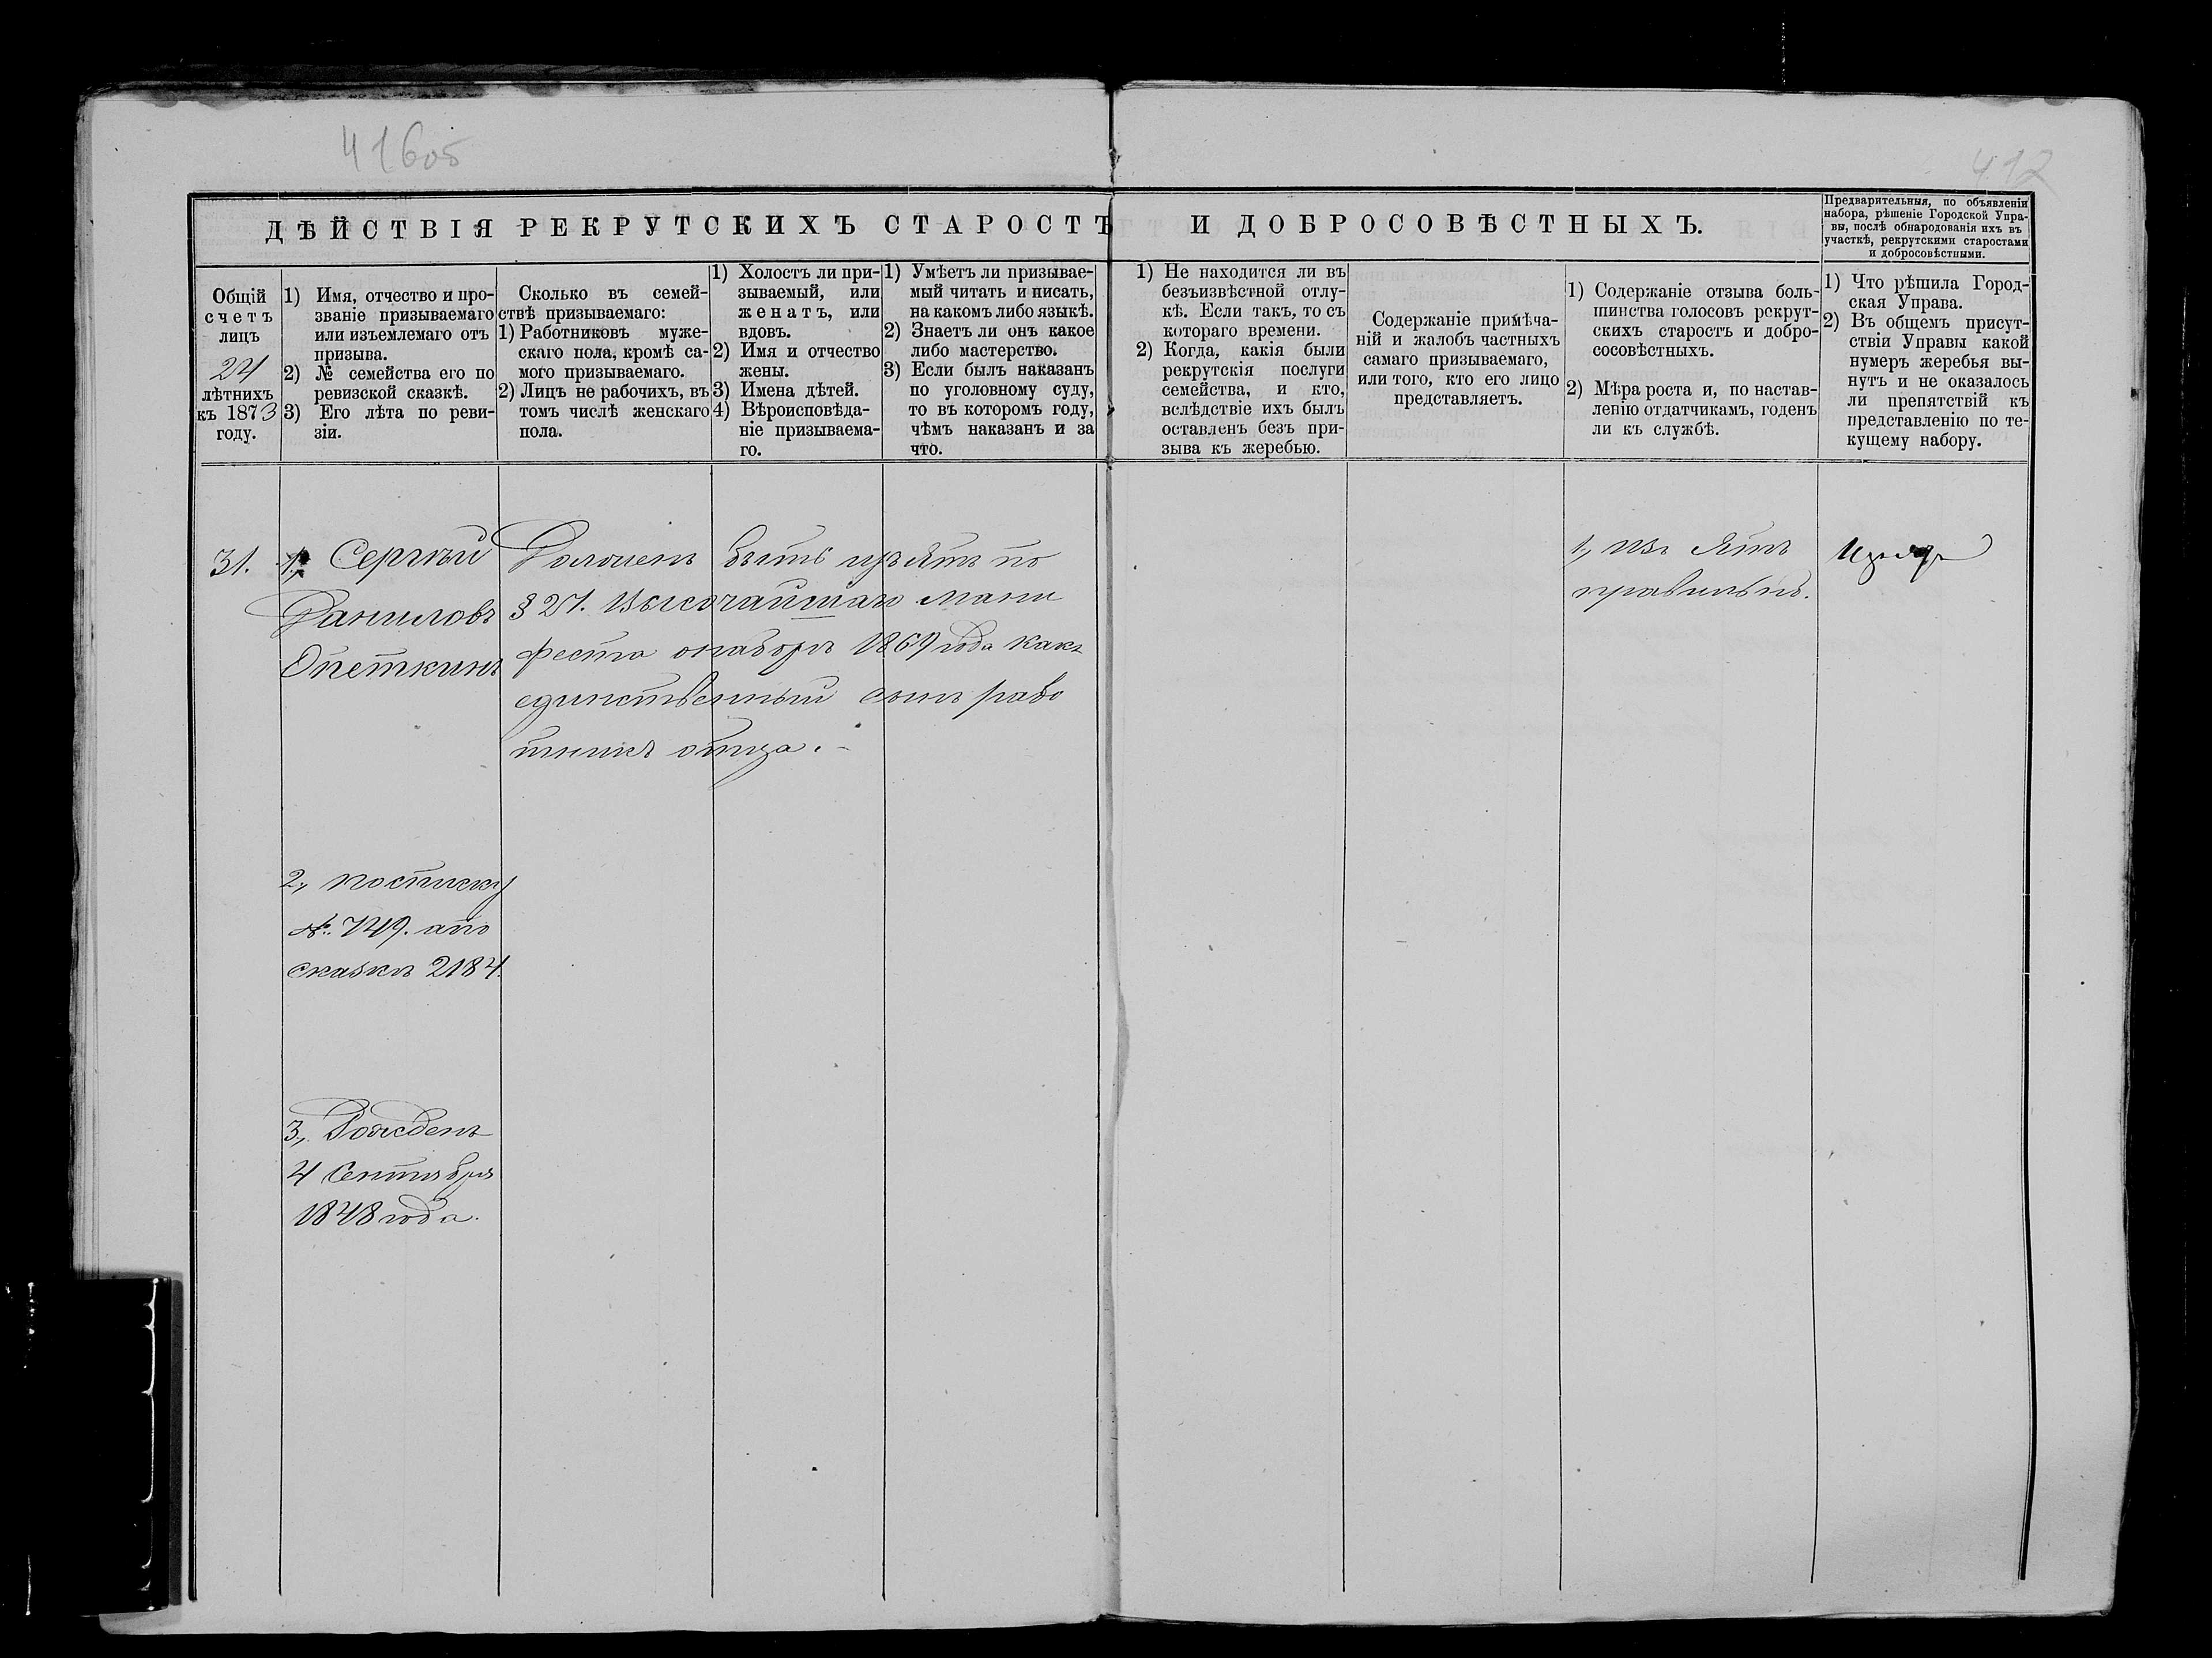 41605
412
ДѢЙСТВІЯ РЕКРУТСКИХЪ СТАРОСТЪ И ДОБРОСОВѢСТНЫХЪ.
Предварительныя, по объявленіи
набора, рѣшеніе Городской Упра-
вы, послѣ обнародованія ихъ въ
участкѣ, рекрутскими старостами
и добросовѣстными.
Общій
счетъ
лицъ
24
лѣтнихъ
къ 1873
году.
1) Имя, отчество и про-
званіе призываемаго
или изъемлемаго отъ
призыва.
2) № семейства его по
ревизской сказкѣ.
3) Его лѣта по реви-
зіи.
Сколько въ семей-
ствѣ призываемаго:
1) Работниковъ муже-
скаго пола, кромѣ са-
мого призываемаго.
2) Лицъ не рабочихъ, въ
томъ числѣ женскаго
пола.
1) Холостъ ли при-
зываемый, или
женатъ, или
вдовъ.
2) Имя и отчество
жены.
3) Имена дѣтей.
4) Вѣроисповѣда-
ніе призываема-
го.
1) Умѣетъ ли призывае-
мый читать и писать,
на какомъ либо языкѣ.
2) Знаетъ ли онъ какое
либо мастерство.
3) Если былъ наказанъ
по уголовному суду,
то въ которомъ году,
чѣмъ наказанъ и за
что.
1) Не находится ли въ
безъизвѣстной отлу-
кѣ. Если такъ, то съ
котораго времени.
2) Когда, какія были
рекрутскія послуги
семейства, и кто,
вслѣдствіе ихъ былъ
оставленъ безъ при-
зыва къ жеребью.
Содержаніе примѣча-
ній и жалобъ частныхъ
самаго призываемаго,
или того, кто его лицо
представляетъ.
1) Содержаніе отзыва боль-
шинства голосовъ рекрут-
скихъ старостъ и добро-
сосовѣстныхъ.
2) Мѣра роста и, по настав-
ленію отдатчикамъ, годенъ
ли къ службѣ.
1) Что рѣшила Город-
ская Управа.
2) Въ общемъ присут-
ствіи Управы какой
нумеръ жеребья вы-
нутъ и не оказалось
ли препятствій къ
представленію по те-
кущему набору.
31.
1, Сергѣй
Даниловъ
Опеткинъ
2, по списку
№ 749. а по
сказкѣ 2184.
3, Рожденъ
4 Сентября
1848 года.
Долженъ быть изъятъ по
§ 27. Высочайшаго мани
феста о наборѣ 1869 года какъ
единственный сынъ рабо
тникъ отца.
1, Изъятъ
правильно.